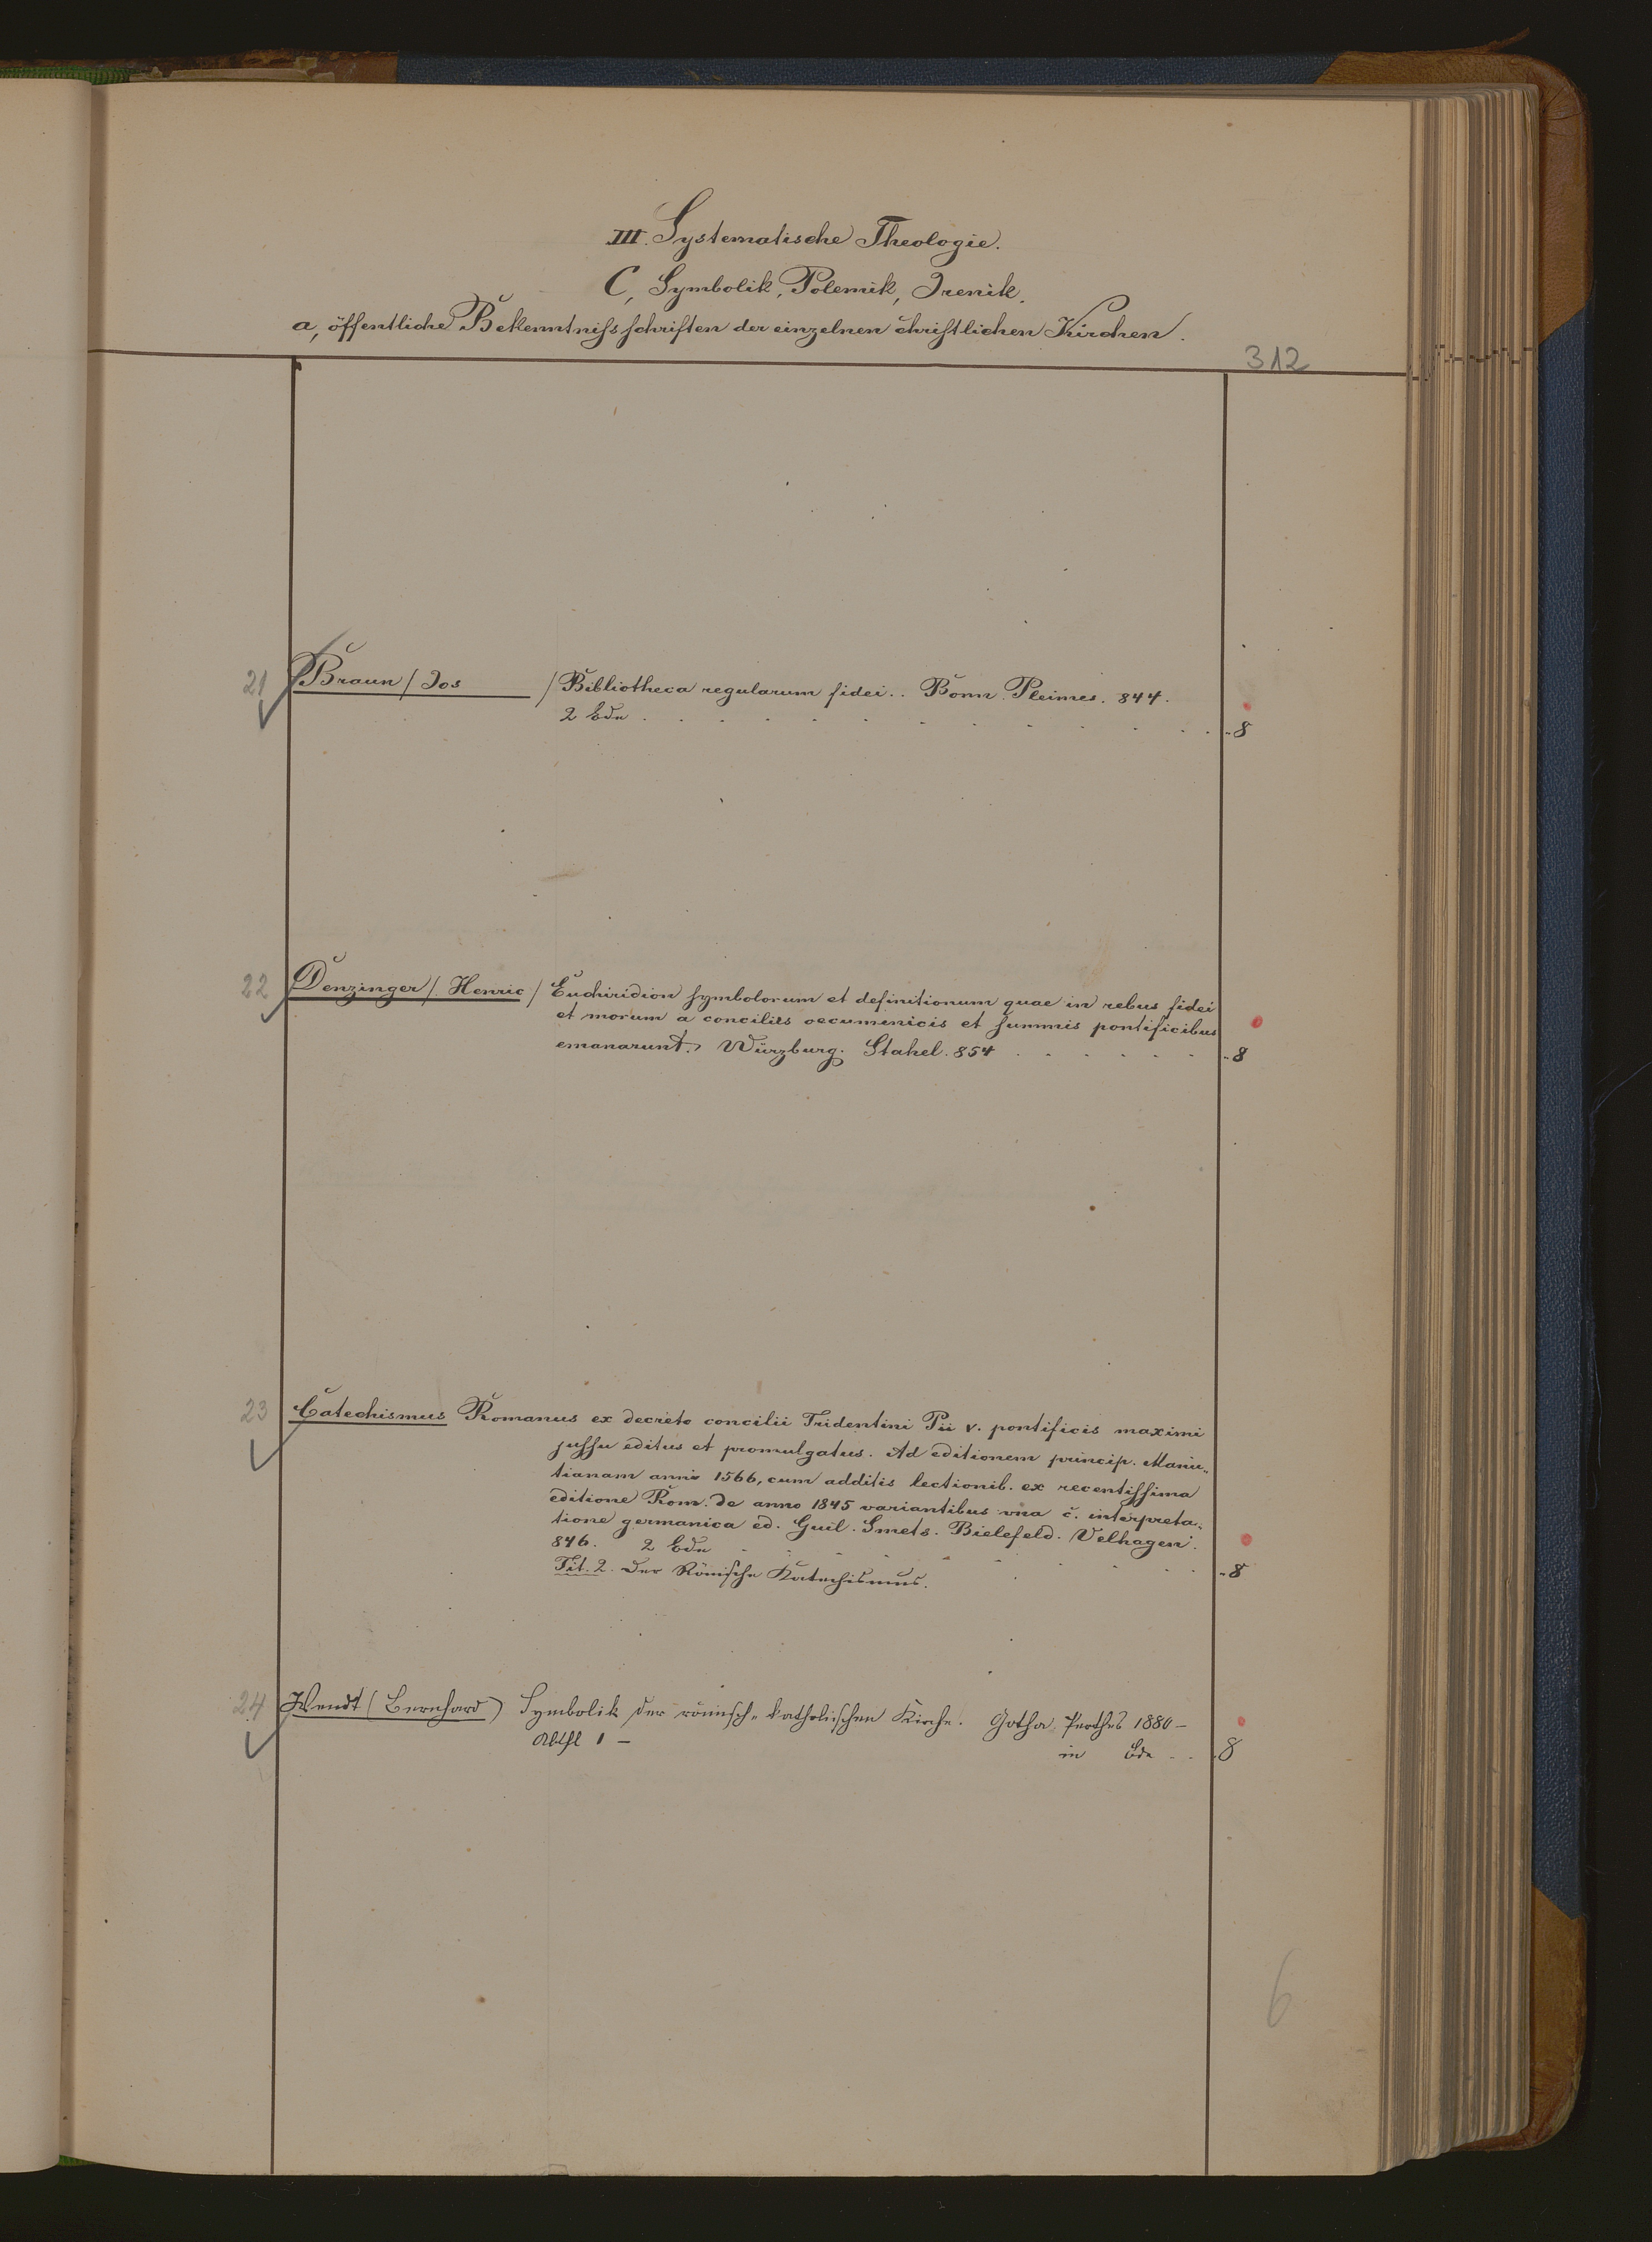 III. Systematische Theologie.
C, Symbolik, Polemik, Irenik.
a, öffentliche Bekenntnißschriften der einzelnen christlichen Kirchen.
312
21 Braun / Jos / Bibliotheca regularum fidei.. Bonn. Pleimes. 844.
2 Bde . . . . . . . . . . „8
22 Denzinger /. Henric / Enchiridion symbolorum et definitionum quae in rebus fidei
et morum a conciliis oecumenicis et summis pontificibus
emanarunt. Würzburg. Stahel. 854 . . . . . . „8
23 Catechismus Romanus ex decreto concilii Tridentini Pii V. pontificis maximi
jussu editus et promulgatus. Ad editionem princip. Manu„
tianam anni 1566, cum additis lectionib. ex recentissima
editione Rom. de anno 1845 variantibus una c̄. interpreta„
tione germanica ed. Guil. Smets. Bielefeld. Velhagen.
846. 2 Bde . . . . . . . . „8
Tit. 2. Der Römische Katechismus.
24 Wendt (Bernhard) Symbolik der römisch-katholischen Kirche. Gotha. Perthes 1880 –
Abthl 1 – in Bde . . . 8
6